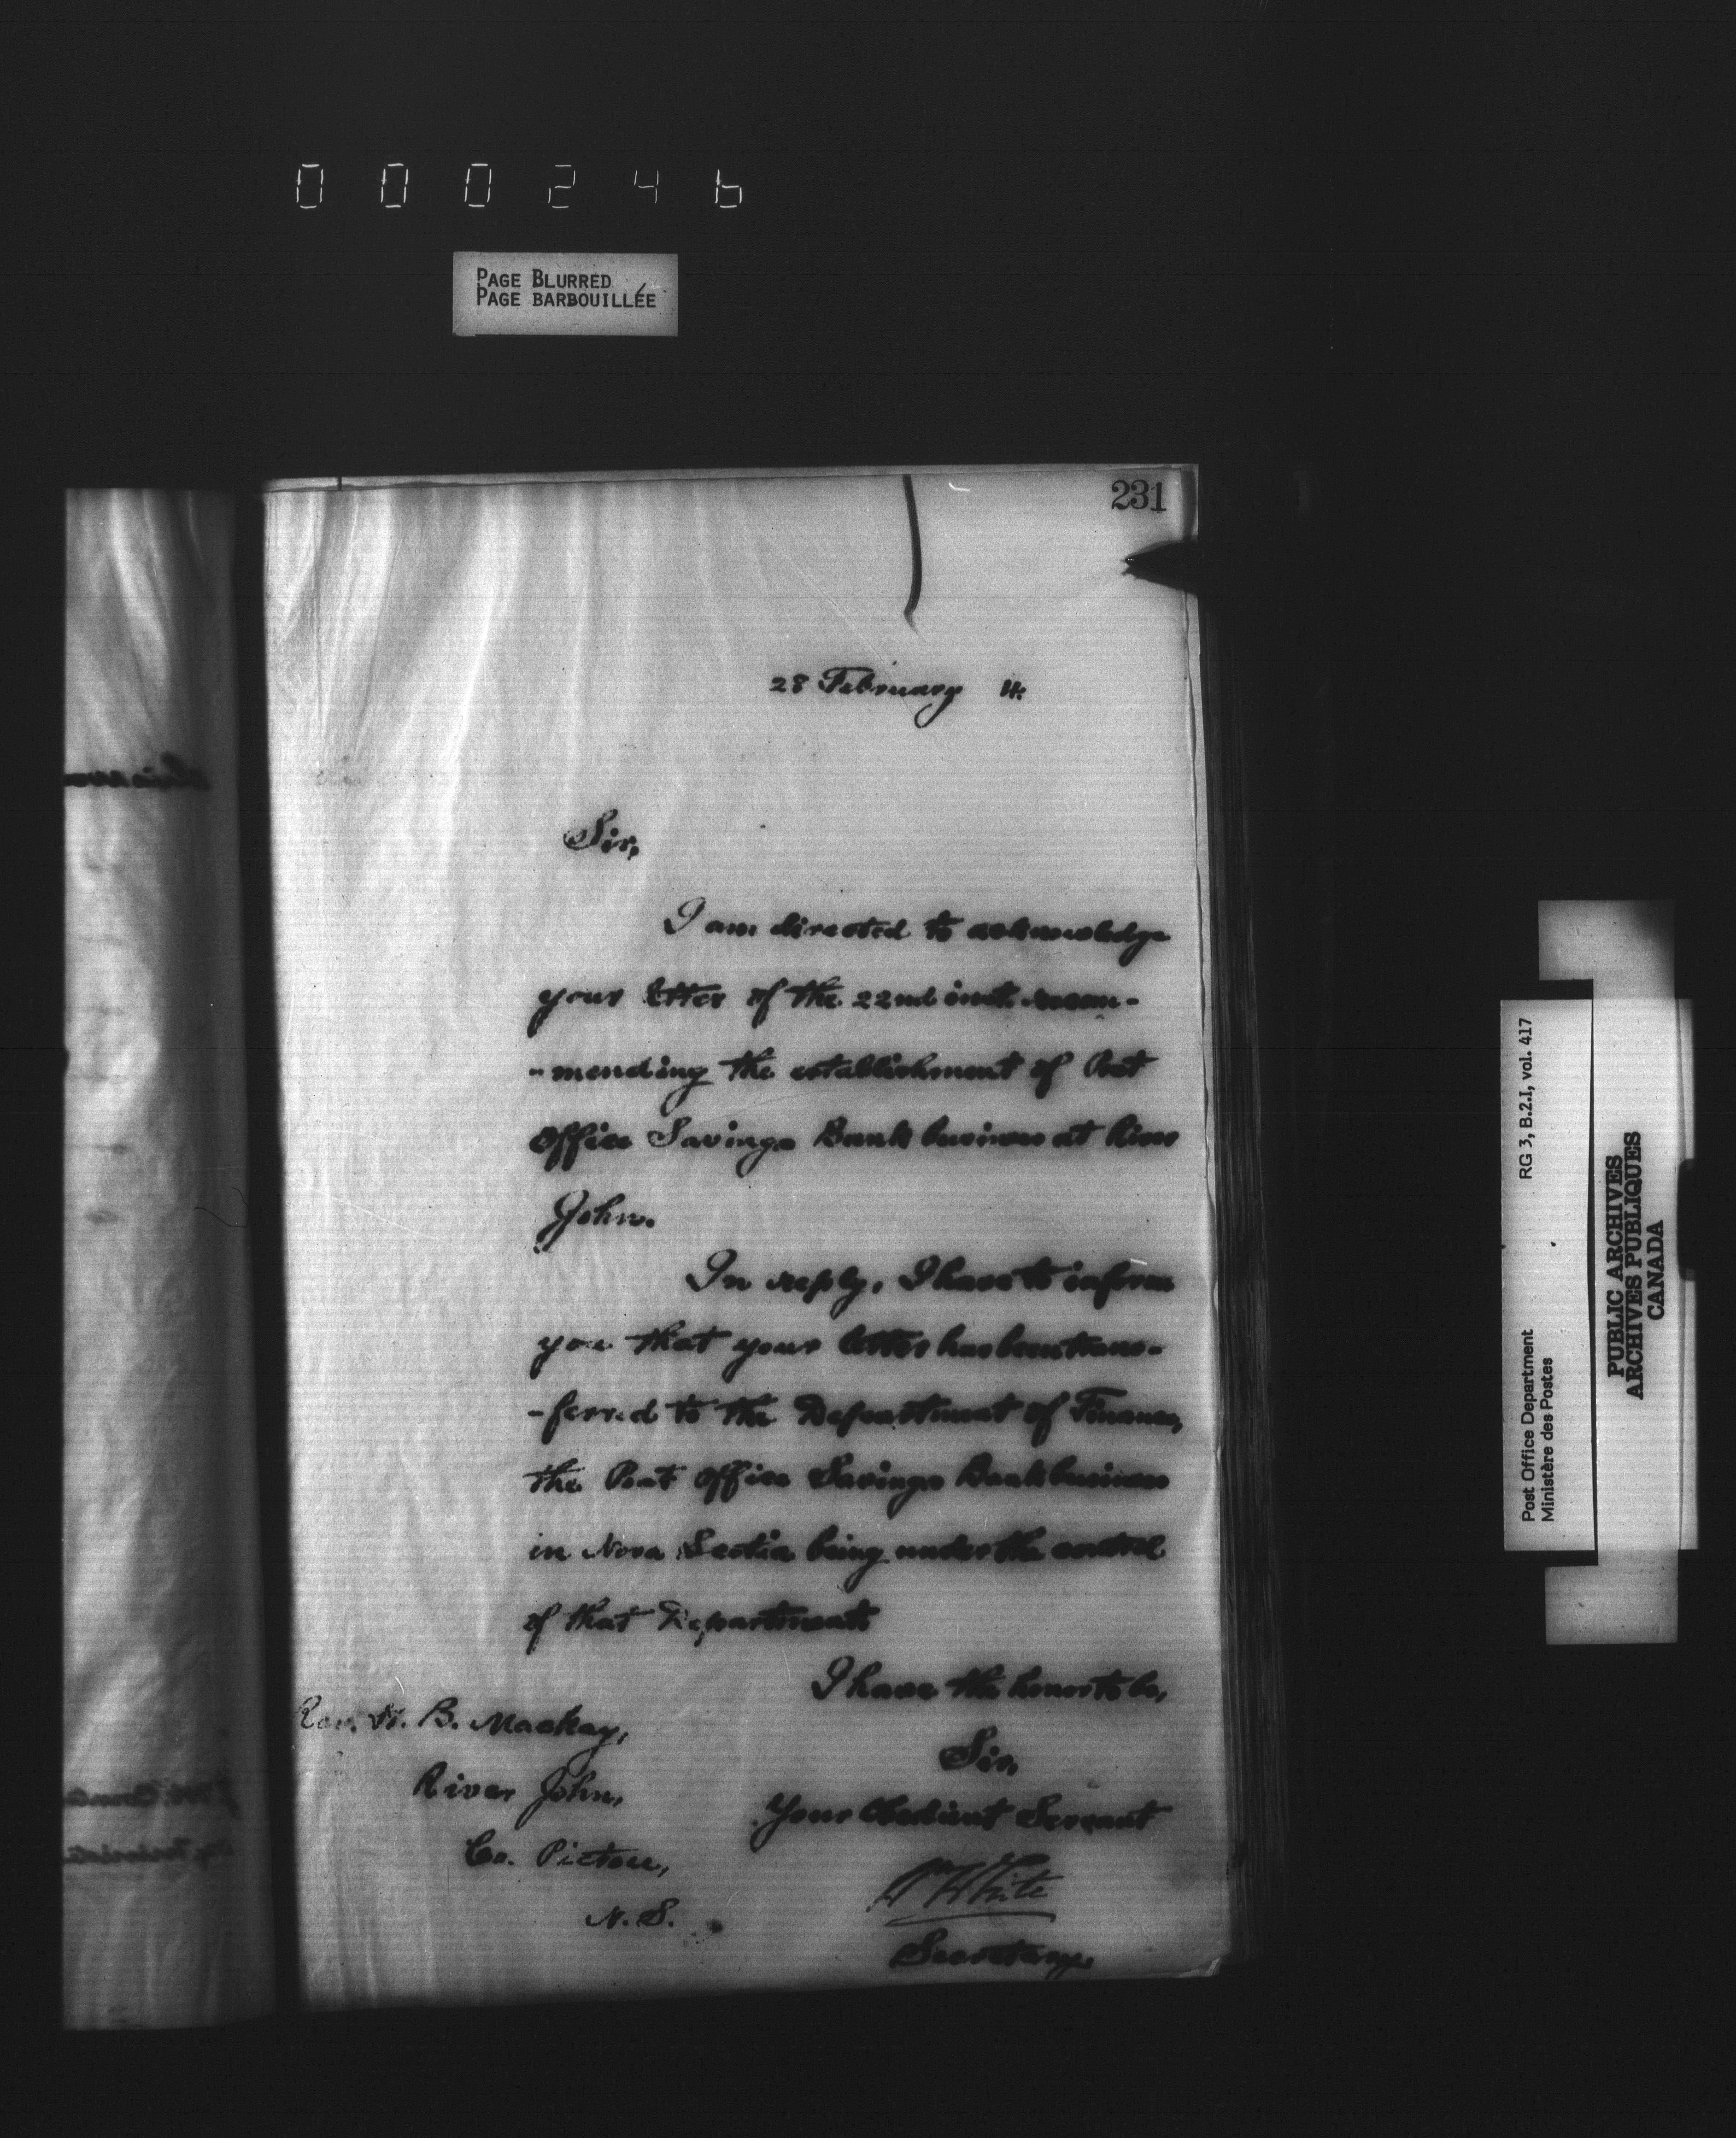 000246
PAGE BLURRED
PAGE BARBOUILLÉE
231
28 February 4.
Sir,
I am directed to acknowledge
your letter of the 22nd inst. recom-
-mending the establishment of Post
Office Savings Bank business at River
John.
In reply, I have to inform
you that your letter has been trans-
-ferred to the Department of Finance,
the Post Office Savings Bank business
in Nova Scotia being under the control
of that Department.
I have the honor to be,
Sir,
Your Obedient Servant
Wm White
Secretary.
Rev. B. Mackay,
River John,
Co. Pictou,
N. S.
Post Office Department
Ministère des Postes
RG 3, B.2.I, vol. 417
PUBLIC ARCHIVES
ARCHIVES PUBLIQUES
CANADA